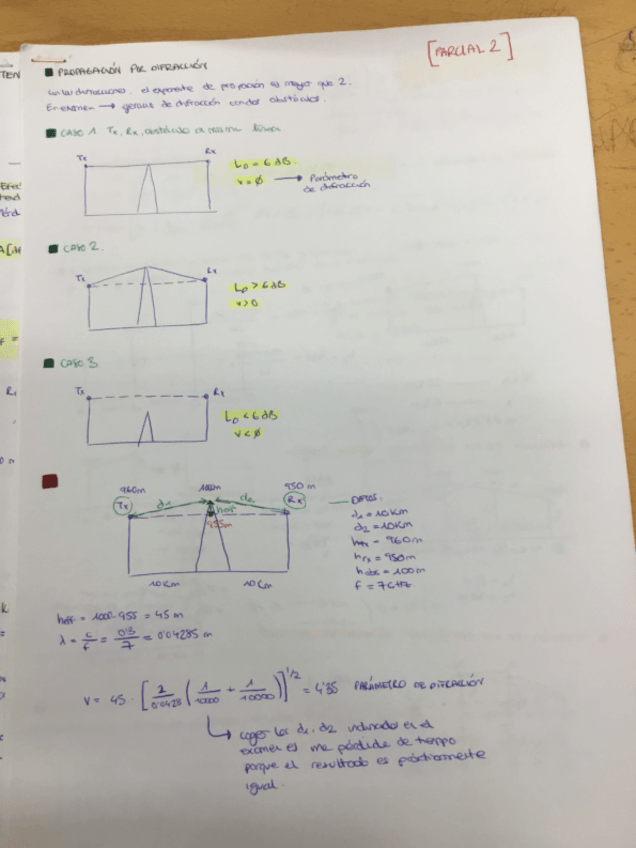 [PARCIAL 2]
PROPAGACIÓN POR DIFRACCIÓN
el exponente de propación es mayor que 2.
En examen → de difracción con dos obstáculos.
CASO 1 Tx, Rx, obstáculo a misma línea.
Tx
Rx
L_D = 6 dB.
v = ∅ → Parámetro
de difracción
CASO 2.
Tx
Rx
L_D > 6 dB
v > 0
CASO 3
Tx
Rx
L_D < 6 dB
v < ∅
960m
950 m
Tx
d1
d2
Rx
heff
955m
10Km
10Km
DATOS.
d1 = 10Km
d2 = 10Km
htx = 960m
hrx = 950m
hobs = 100m
f = 7GHz.
heff = 1000-955 = 45 m
λ = c/f = 0'3/7 = 0'04285 m
v = 45 · [2/0'0428 (1/1000 + 1/10000)]^1/2 = 4'35 PARÁMETRO DE DIFRACCIÓN
↳ coger los d1, d2 inclinados en el
examen es una pérdida de tiempo
porque el resultado es prácticamente
igual.